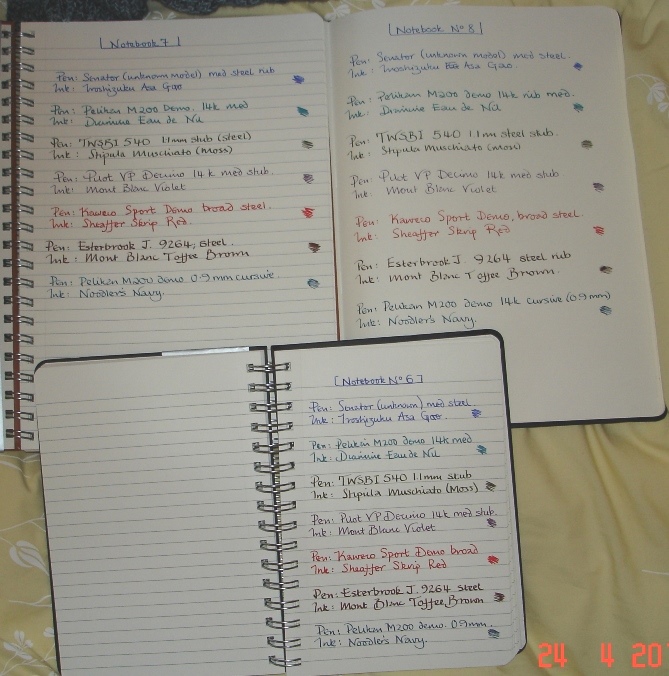 [Notebook 7]
Pen: Senator (unknown model) med steel nib
Ink: Iroshizuku Asa Gao
Pen: Pelikan M200 Demo. 14k med
Ink: Diamine Eau de Nil
Pen: TWSBI 540 1.1mm stub (steel)
Ink: Stipula Muschiato (Moss)
Pen: Pilot VP Decimo 14k med stub
Ink: Mont Blanc Violet
Pen: Kaweco Sport Demo broad steel.
Ink: Sheaffer Skrip Red.
Pen: Esterbrook J. 9264, steel.
Ink: Mont Blanc Toffee Brown
Pen: Pelikan M200 demo 0.9mm cursive.
Ink: Noodler's Navy.
[Notebook No 8]
Pen: Senator (unknown model) med steel.
Ink: Iroshizuku Asa Gao
Pen: Pelikan M200 Demo 14k nib med.
Ink: Diamine Eau de Nil
Pen: TWSBI 540 1.1mm steel stub.
Ink: Stipula Muschiato (moss)
Pen: Pilot VP Decimo 14k med stub
Ink: Mont Blanc Violet
Pen: Kaweco Sport Demo, broad steel
Ink: Sheaffer Skrip Red.
Pen: Esterbrook J. 9264 steel nib
Ink: Mont Blanc Toffee Brown.
Pen: Pelikan M200 demo 14k cursive (0.9mm)
Ink: Noodler's Navy.
[Notebook No 6]
Pen: Senator (unknown) med steel.
Ink: Iroshizuku Asa Gao.
Pen: Pelikan M200 demo 14k med
Ink: Diamine Eau de Nil
Pen: TWSBI 540 1.1mm stub
Ink: Stipula Muschiato (Moss)
Pen: Pilot VP Decimo 14k med stub.
Ink: Mont Blanc Violet
Pen: Kaweco Sport Demo broad
Ink: Sheaffer Skrip Red
Pen: Esterbrook J. 9264 steel
Ink: Mont Blanc Toffee Brown
Pen: Pelikan M200 demo. 0.9mm.
Ink: Noodler's Navy.
24 4 20